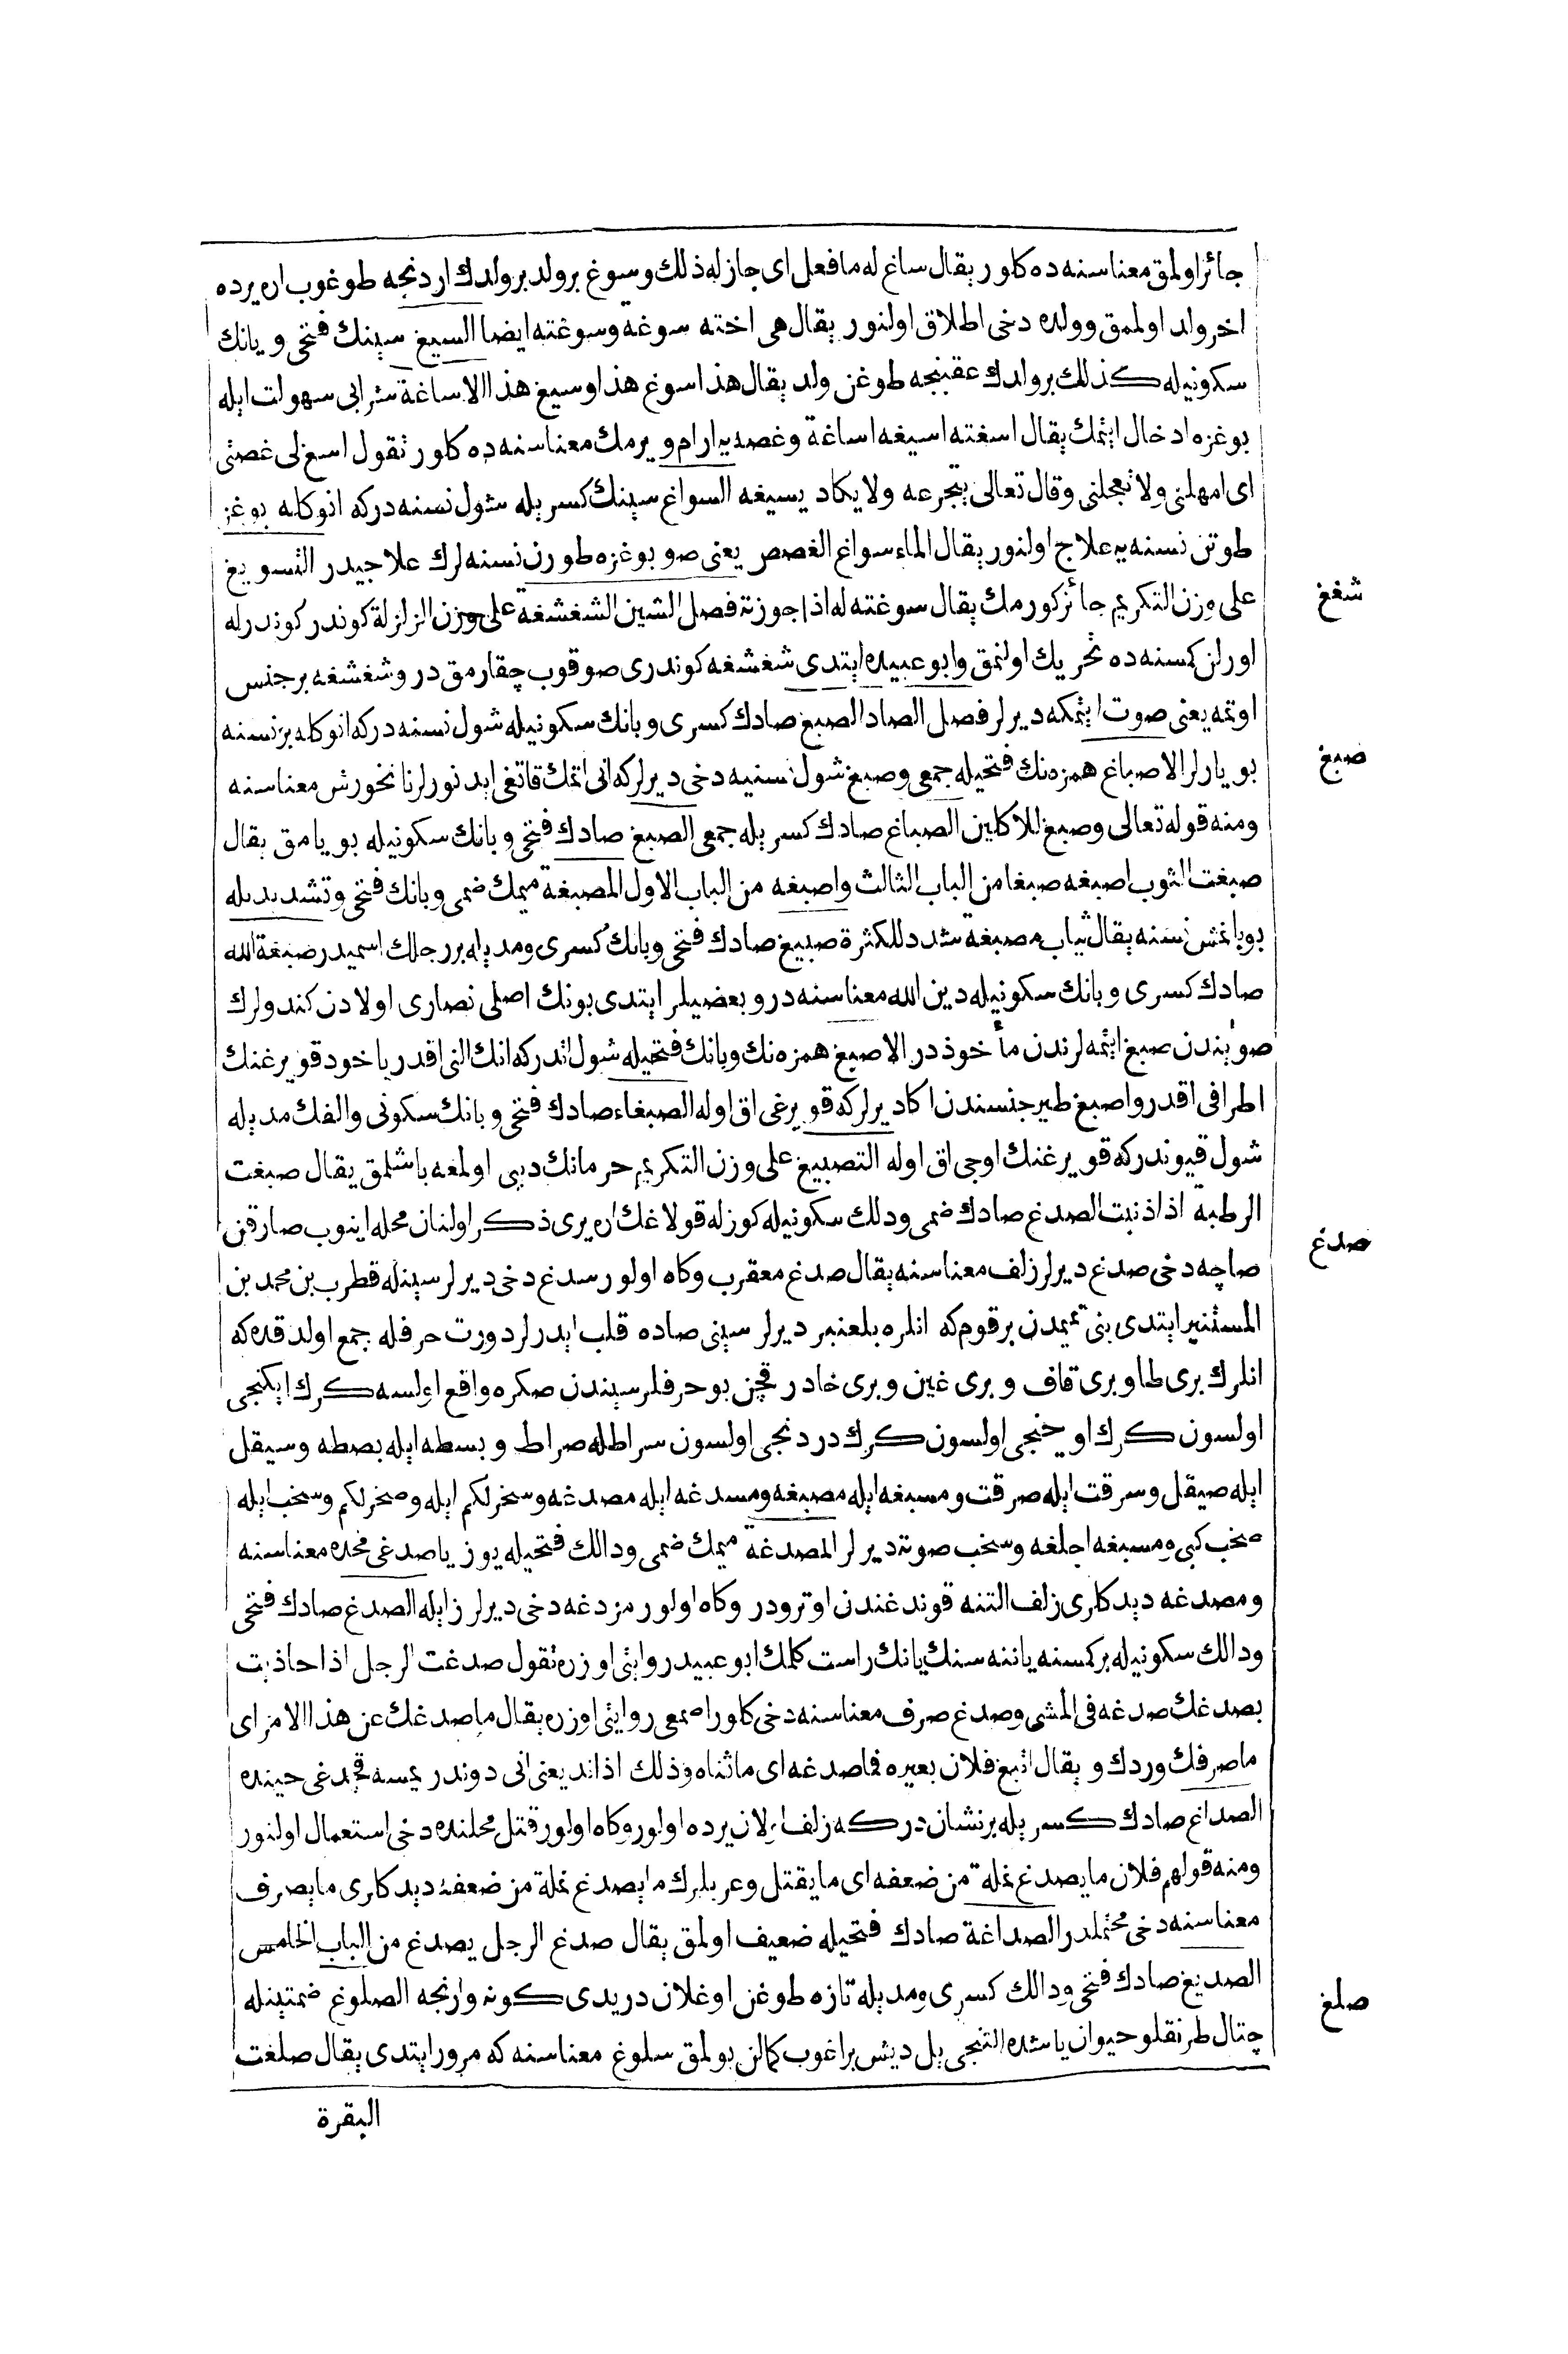 جائز اولمق معناسنه ده كلور يقال ساغ له ما فعل اى جاز له ذلك وسوغ بر ولد بر ولدك اردنجه طوغوب اره يرده
اخر ولد اولممق وولده دخى اطلاق اولنور يقال هى اخته سوغة وسوغته ايضا السيغ سينك فتحى ويانك
سكونيله كذلك بر ولدك عقبنجه طوغن ولد يقال هذا سوغ هذا وسيغ هذا الاساغة شرابى سهولت ايله
بوغزه ادخال ايتمك يقال اسغته اسيغه اساغة وغصه يه ارام ويرمك معناسنه ده كلور تقول اسغ لى غصتى
اى امهلنى ولا تعجلنى وقال تعالى يتجرعه ولا يكاد يسيغه السواغ سينك كسريله شول نسنه دركه انوكله بوغز
طوتن نسنه يه علاج اولنور يقال الماء سواغ الغصص يعنى صو بوغزه طورن نسنه لرك علاجيدر التسويغ
على وزن التكريم جائز كورمك يقال سوغته له اذا جوزته فصل الشين الشغشغة على وزن الزلزلة كوندر كوندرله
اورلن كمسنه ده تحريك اولنمق وابو عبيده ايتدى شغشغه كوندرى صوقوب چقارمق در وشغشغه بر جنس
اوتمه يعنى صوت ايتمكه ديرلر فصل الصاد الصبغ صادك كسرى وبانك سكونيله شول نسنه دركه انوكله بر نسنه
بويارلر الاصباغ همزه نك فتحيله جمعى وصبغ شول نسنيه دخى ديرلركه انى اتمك قاتغى ايدنورلر نانخورش معناسنه
ومنه قوله تعالى وصبغ للاكلين الصباغ صادك كسريله جمعى الصبغ صادك فتحى وبانك سكونيله بويامق يقال
صبغت الثوب اصبغه صبغا من الباب الثالث واصبغه من الباب الاول المصبغة ميمك ضمى وبانك فتحى وتشديديله
بويانمش نسنه يقال ثياب مصبغة شدد للكثرة صبيغ صادك فتحى وبانك كسرى ومديله بر رجلك اسميدر صبغة الله
صادك كسرى وبانك سكونيله دين الله معناسنه در وبعضيلر ايتدى بونك اصلى نصارى اولادن كندولرك
صوبندن صبغ ايتمه لرندن مأخوذ در الاصبغ همزه نك وبانك فتحيله شول اتدركه انك النى اقدر ياخود قويرغنك
اطرافى اقدر واصبغ طير جنسندن اكا ديرلركه قويرغى اق اوله الصبغاء صادك فتحى وبانك سكونى والفك مديله
شول قيوندركه قويرغنك اوجى اق اوله التصبيغ على وزن التكريم خرمانك ديبى اولمغه باشلمق يقال صبغت
الرطبة اذا ذنبت الصدغ صادك ضمى ودلك سكونيله كوزله قولاغك اره يرى ذكر اولنان محله اينوب صارقن
صاچه دخى صدغ ديرلر زلف معناسنه يقال صدغ معقرب وكاه اولور سدغ دخى ديرلر سينله قطرب بن محمد بن
المستنير ايتدى بنى تميمدن بر قوم كه انلره بلعنبر ديرلر سينى صاده قلب ايدرلر دورت حرفله جمع اولدقده كه
انلرك برى طا وبرى قاف وبرى غين وبرى خادر قچن بو حرفلر سيندن صكره واقع اولسه كرك ايكنجى
اولسون كرك اوچنجى اولسون كرك دردنجى اولسون سراطله صراط وبسطه ايله بصطه وسيقل
ايله صيقل وسرقت ايله صرقت ومسبغه ايله مصبغه ومسدغه ايله مصدغه وسخر لكم ايله وصخر لكم وسخب ايله
صخب كبى ومسبغه اجلغه وسخب صوته ديرلر المصدغة ميمك ضمى ودالك فتحيله يوز ياصدغى مخده معناسنه
ومصدغه ديدكلرى زلف التنه قوندغندن اوترودر وكاه اولور مزدغه دخى ديرلر زا ايله الصدغ صادك فتحى
ودالك سكونيله بر كمسنه ياننه سنك يانك راست كلمك ابو عبيد روايتى اوزره تقول صدغت الرجل اذا حاذيت
بصدغك صدغه فى المشى وصدغ صرف معناسنه دخى كلور اصمعى روايتى اوزره يقال ما صدغك عن هذا الامر اى
ما صرفك وردك ويقال اتبع فلان بعيره فما صدغه اى ما ثناه وذلك اذا ند يعنى انى دوندريمسه قچدغى حينده
الصداغ صادك كسريله بر نشان دركه زلف اولان يرده اولور وكاه اولور قتل محلنده دخى استعمال اولنور
ومنه قولهم فلان ما يصدغ نملة من ضعفه اى ما يقتل وعربلرك ما يصدغ نملة من ضعفه ديدكلرى ما يصرف
معناسنه دخى محتملدر الصداغة صادك فتحيله ضعيف اولمق يقال صدغ الرجل يصدغ من الباب الخامس
الصديغ صادك فتحى ودالك كسرى ومديله تازه طوغن اوغلان در يدى كونه وارنجه الصلوغ ضمتينله
چتال طرنقلو حيوان ياشده التنجى يل ديش براغوب كمالن بولمق سلوغ معناسنه كه مرور ايتدى يقال صلغت
البقرة
شغغ
صبغ
صدغ
صلغ